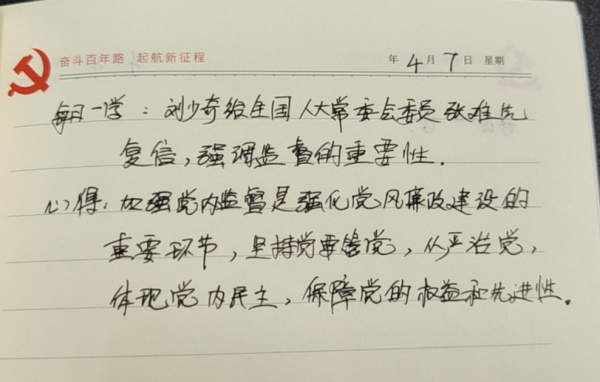 奋斗百年路 起航新征程
年 4 月 7 日 星期
每日一学：刘少奇给全国人大常委会委员张难先
复信，强调监督的重要性.
心得：加强党内监督是强化党风廉政建设的
重要环节，坚持党要管党，从严治党，
体现党内民主，保障党的权益和先进性。